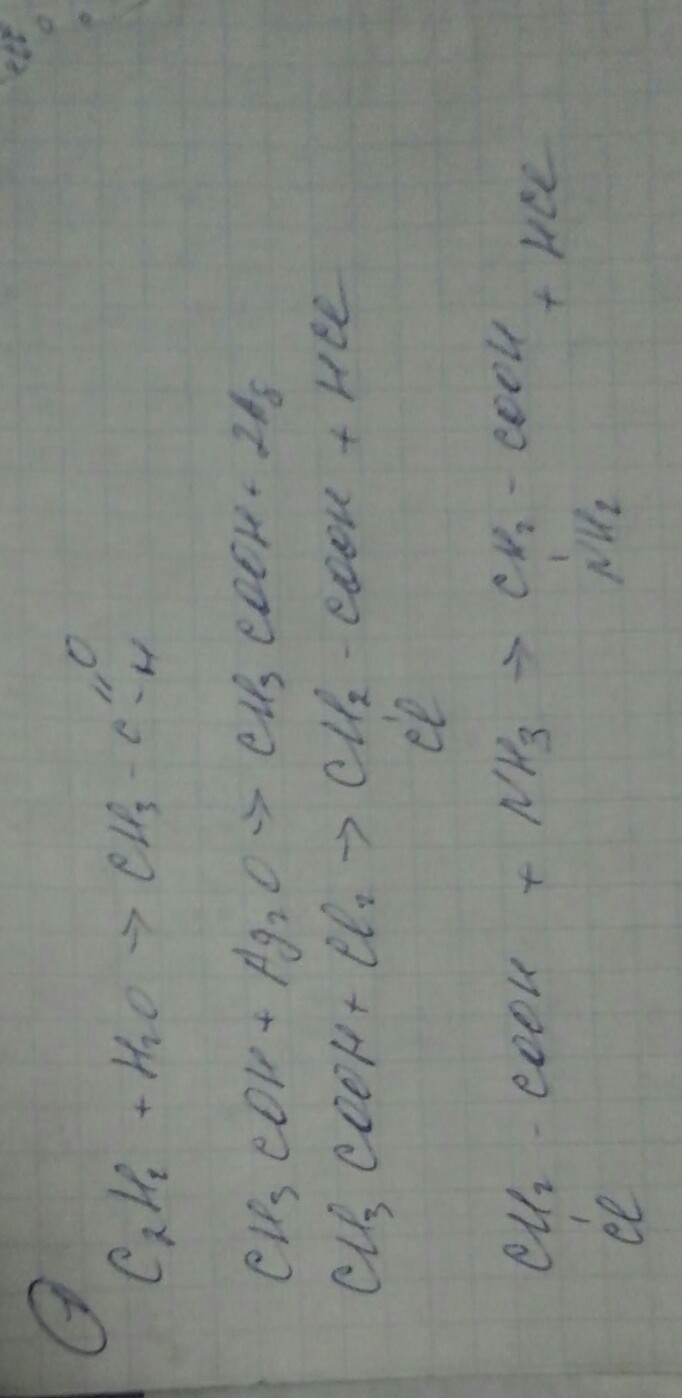 ①
C₂H₂ + H₂O → CH₃ - C =O - H
CH₃ COH + Ag₂O → CH₃ COOH + 2Ag
CH₃ COOH + Cl₂ → CH₂ - COOH + HCl
Cl
CH₂ - COOH + NH₃ → CH₂ - COOH + HCl
Cl NH₂